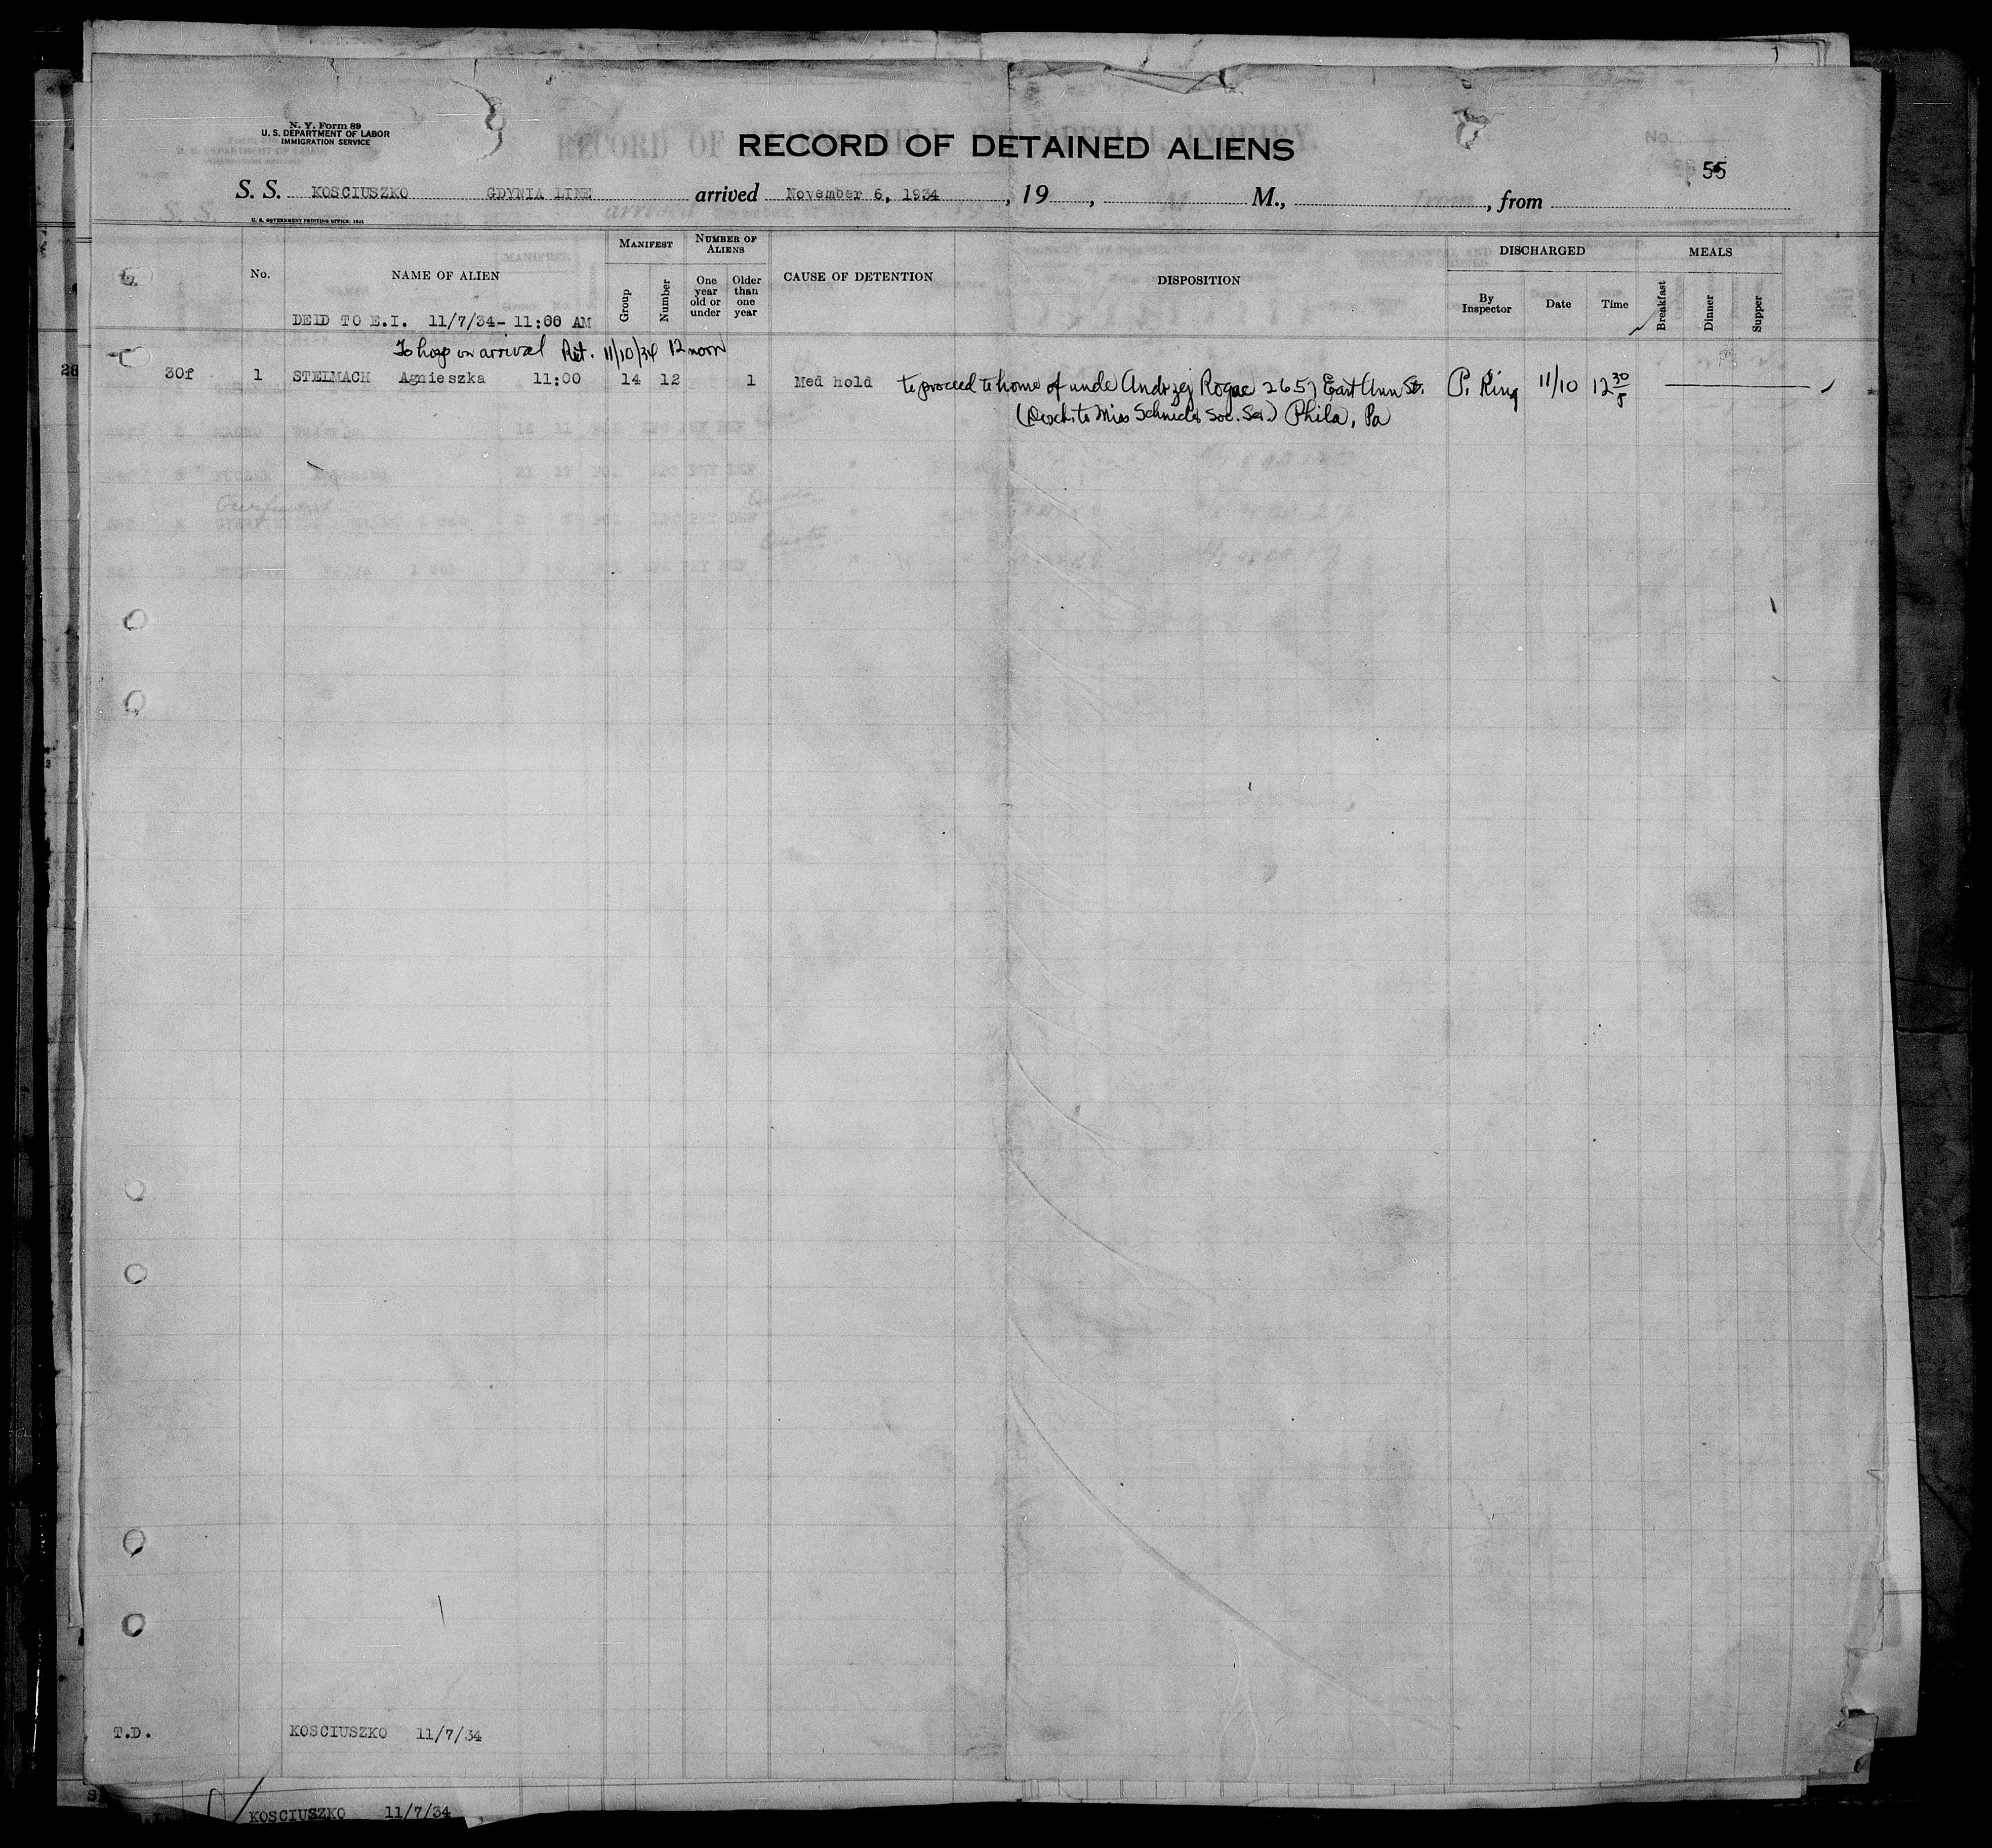 N. Y. Form 89
U. S. DEPARTMENT OF LABOR
IMMIGRATION SERVICE
RECORD OF DETAINED ALIENS
55
S. S. KOSCIUSZKO GDYNIA LINE arrived November 6, 1934, 19 , M., , from
U. S. GOVERNMENT PRINTING OFFICE: 1931
No.
NAME OF ALIEN
MANIFEST
Group
Number
NUMBER OF ALIENS
One year old or under
Older than one year
CAUSE OF DETENTION
DISPOSITION
DISCHARGED
By Inspector
Date
Time
MEALS
Breakfast
Dinner
Supper
DEID TO E.I. 11/7/34- 11:00 AM
To hosp on arrival Ret. 11/10/34 12 noon
28
30f 1 STELMACH Agnieszka 11:00 14 12 1 Med hold to proceed to home of uncle Andrzej 2657 East Ann St. P. King 11/10 12 30
(Disch. to Miss Schneider Soc. Ser.) Phila, Pa
T.D. KOSCIUSZKO 11/7/34
KOSCIUSZKO 11/7/34